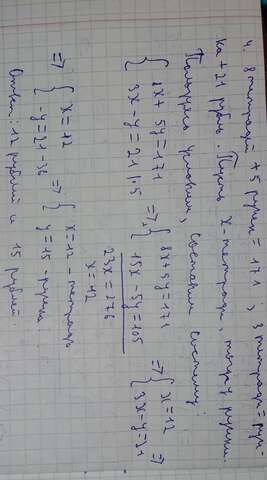 4. 8 тетрадей + 5 ручек = 171 ; 3 тетради = руч-
ка + 21 рубль. Пусть x - тетради, тогда y ручки.
Пользуясь условием, составим систему:
{ 8x + 5y = 171
{ 3x - y = 21 |·5
=> { 8x + 5y = 171
{ 15x - 5y = 105
23x = 276
x = 12
=> { x = 12
{ 3x - y = 21
=>
=> { x = 12
{ -y = 21 - 36
=> { x = 12 - тетрадь
{ y = 15 - ручка
Ответ: 12 рублей и 15 рублей.